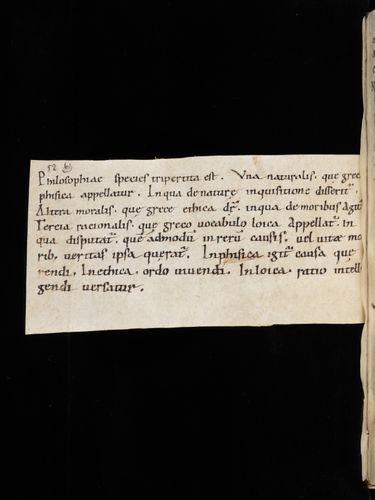 52
Philosophiae species tripertita est. Vna naturalis. que grec
phisica appellatur. In qua de nature inquisitione disserit᷑.
Altera moralis. que grece ethica dr̃. in qua de moribus agit᷑
Tercia racionalis. que greco vocabulo loica Appellat᷑. in
qua disputat᷑. que admodũ in rerũ causis. uel uitae mo
rib; ueritas ipsa querat᷑. In phisica igit᷑ causa que
rendi. In ethica. ordo uiuendi. In loica. ratio intelle
gendi uersatur.